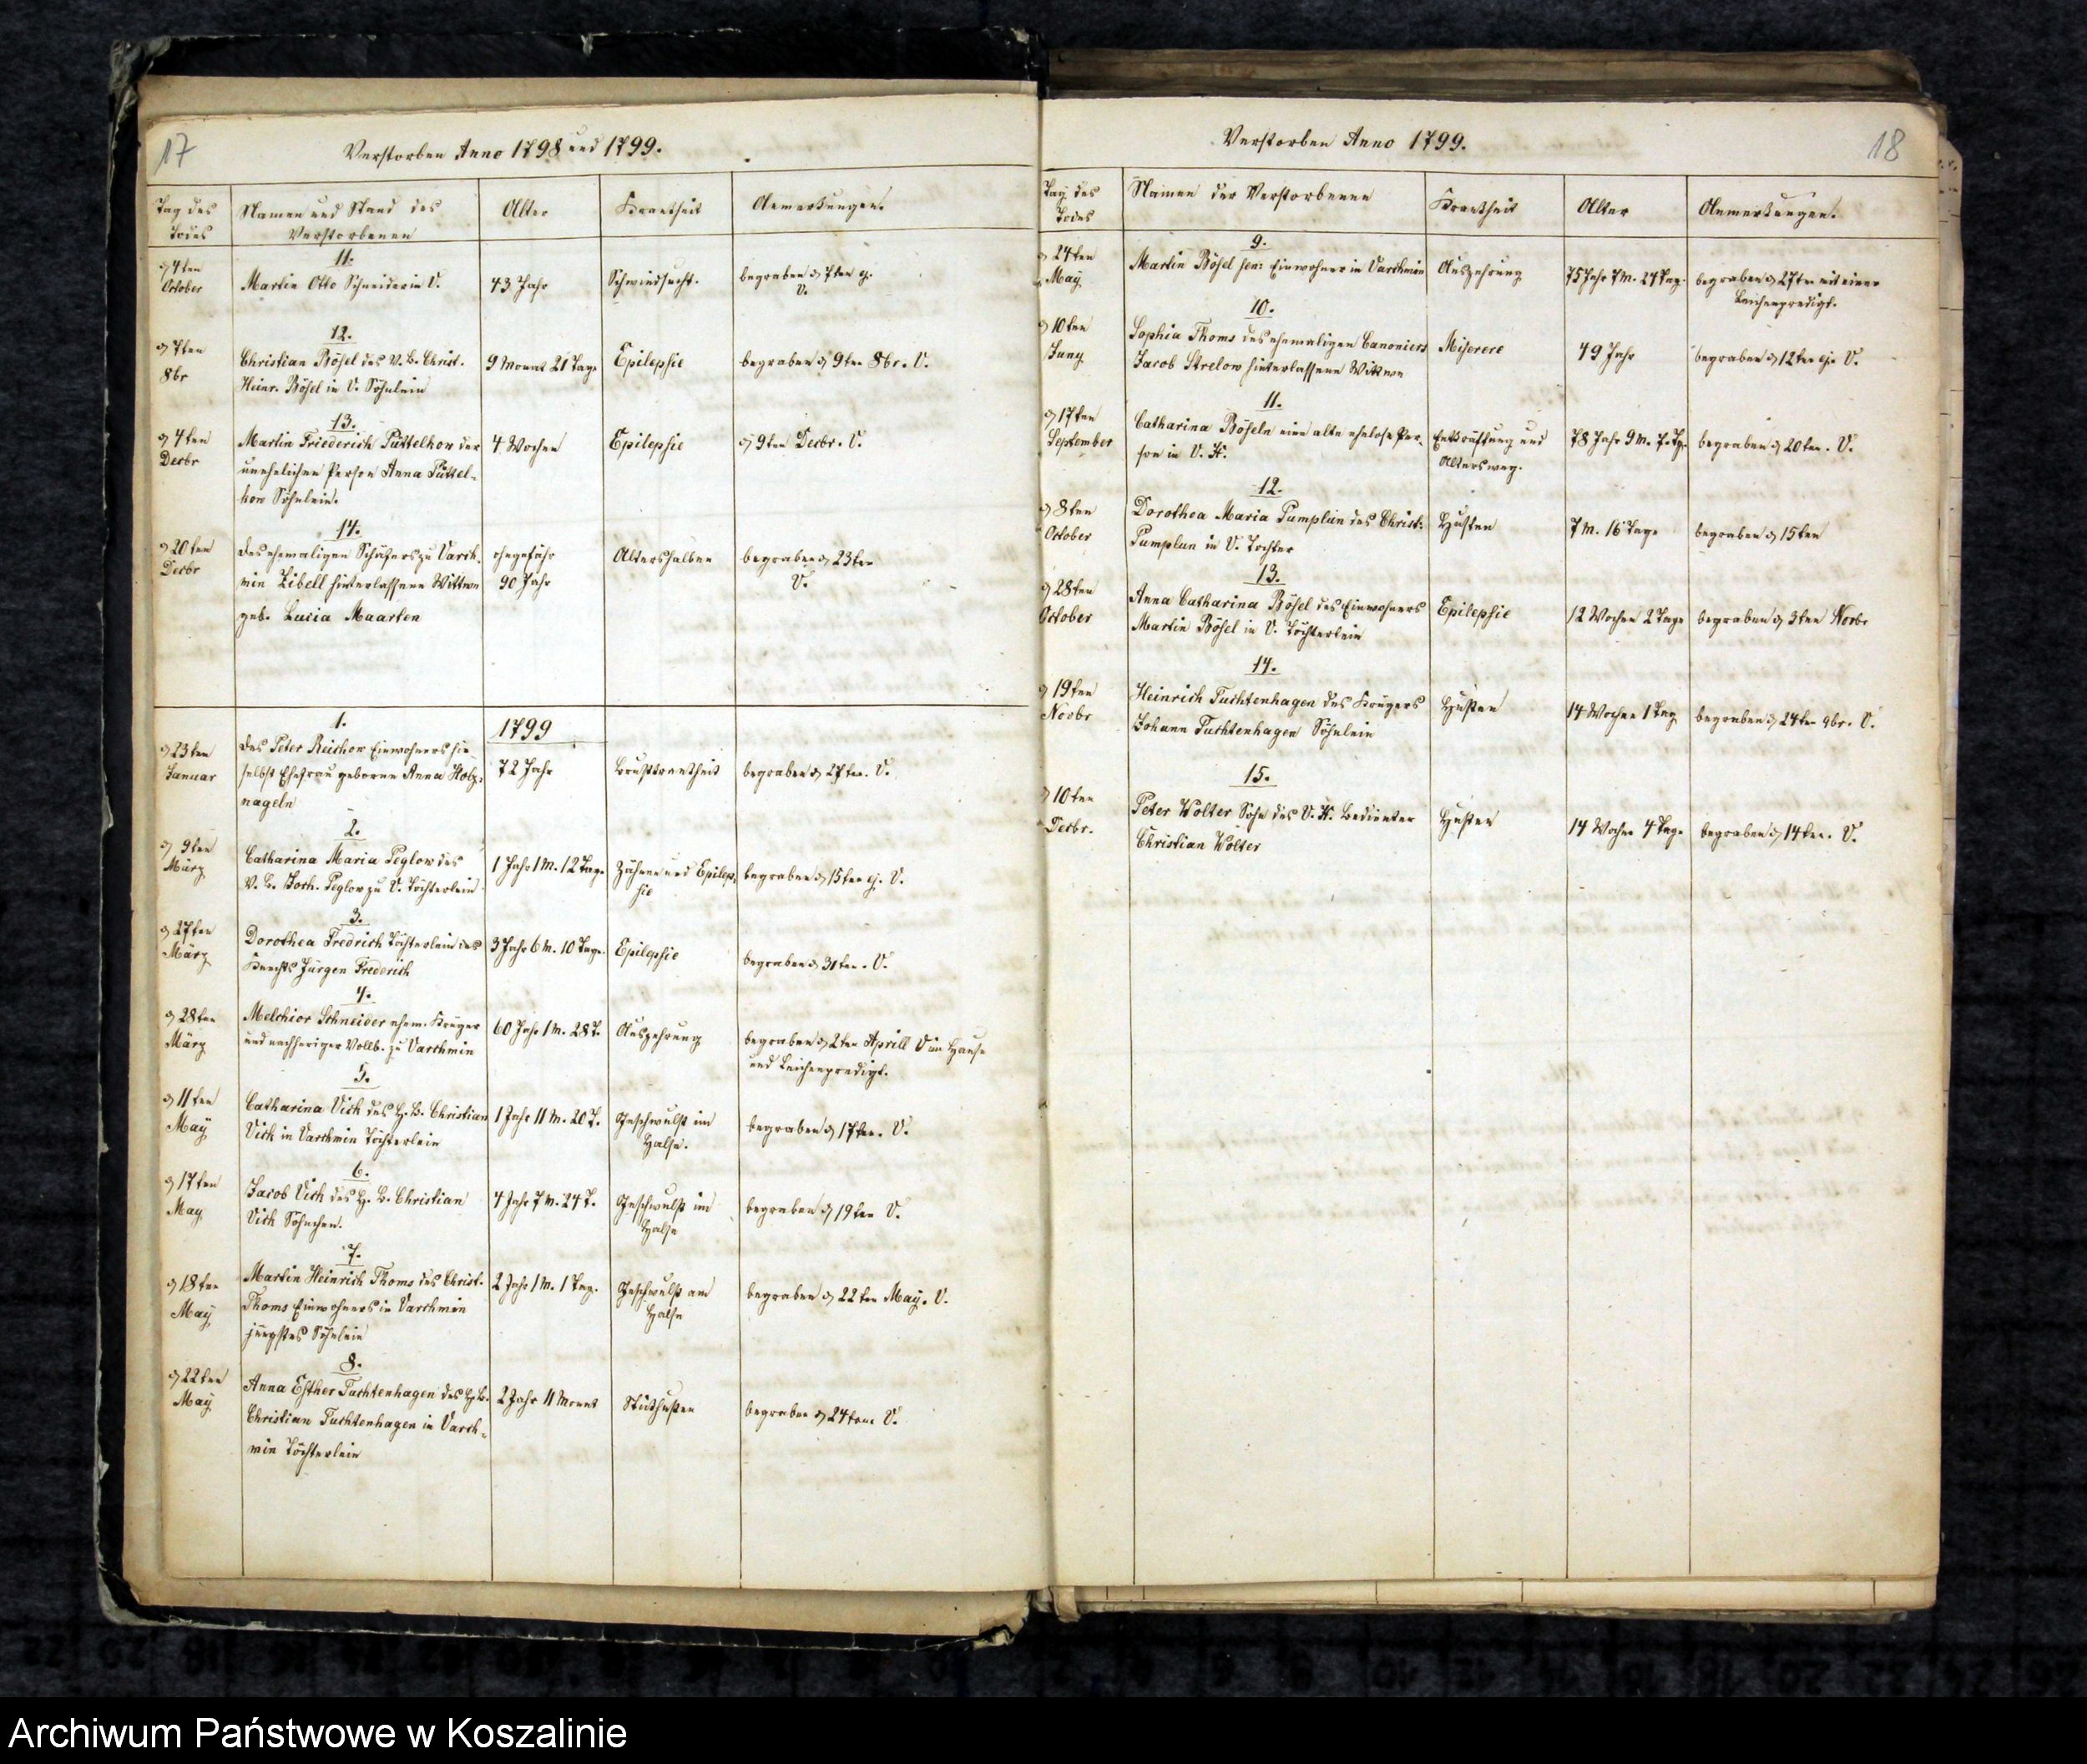 17
Verstorben Anno 1798 und 1799.
Tag des Todes
Namen und Stand des Verstorbenen
Alter
Krankheit
Anmerkungen.
11.
d 4ten October
Martin Otto Schneider in V.
43 Jahr
Schwindsucht.
begraben d 7ten ej. V.
12.
d 7ten 8br
Christian Bösel des V. B. Christ.
Heinr. Bösel in V. Söhnlein
9 Monat 21 Tage
Epilepsie
begraben d 9ten 8br. V.
13.
d 4ten Decbr
Martin Friederich Püttelkow der
unehelichen Person Anna Püttel-
kow Söhnlein.
4 Wochen
Epilepsie
d 9ten Decbr. V.
14.
d 20ten Decbr
des ehemaligen Schäfers zu Varch-
min Zibell hinterlassene Wittwe
geb. Lucia Maarten
ohngefähr
90 Jahr
Altershalber
begraben d 23ten
V.
1799
1.
d 23ten Januar
des Peter Reichow Einwohners hie-
selbst Ehefrau geborne Anna Holz-
nageln
72 Jahr
Brustkrankheit
begraben d 27ten. V.
2.
d 9ten März
Catharina Maria Peglow des
V. B. Joch. Peglow zu V. Töchterlein
1 Jahr 1 M. 12 Tage
Zähne und Epilep-
sie
begraben d 15ten ej. V.
3.
d 27ten März
Dorothea Fredrich Töchterlein des
Knechts Jürgen Frederich
3 Jahr 6 M. 10 Tage.
Epilepsie
begraben d 31ten. V.
4.
d 28ten März
Melchior Schneider ehem. Krüger
und nachheriger Vollb. zu Varchmin
60 Jahr 1 M. 28 T.
Auszehrung
begraben d 2ten Aprill V im Hause
und Leichenpredigt.
5.
d 11ten May
Catharina Vick des H. B. Christian
Vick in Varchmin Töchterlein
1 Jahr 11 M. 20 T.
Geschwulst im
Halse.
begraben d 17ten. V.
6.
d 17ten May
Jacob Vick des H. B. Christian
Vick Söhnchen.
4 Jahr 7 M. 24 T.
Geschwulst im
Halse
begraben d 19ten V.
7.
d 18ten May
Martin Heinrich Thoms des Christ.
Thoms Einwohners in Varchmin
jüngstes Söhnlein
2 Jahr 1 M. 1 Tag.
Geschwulst am
Halse
begraben d 22ten May. V.
8.
d 22ten May
Anna Esther Tuchtenhagen des H. B.
Christian Tuchtenhagen in Varch-
min Töchterlein
2 Jahr 11 Monat
Stickhusten
begraben d 24ten V.
18
Verstorben Anno 1799.
Tag des Todes
Namen der Verstorbenen
Krankheit
Alter
Anmerkungen.
9.
d 24ten May
Martin Bösel sen: Einwohner in Varchmin
Auszehrung
75 Jahr 7 M. 27 Tag.
begraben d 27ten mit einer
Leichenpredigt.
10.
d 10ten Juny
Sophia Thoms des ehemaligen Canoniers
Jacob Strelow hinterlassene Wittwe
Miserere
49 Jahr
begraben d 12ten ej. V.
11.
d 17ten September
Catharina Böseln eine alte ehelose Per-
son in V. H.
Entkräftung und
Altersweg.
78 Jahr 9 M. 7. Tg.
begraben d 20ten. V.
12.
d 8ten October
Dorothea Maria Pumplun des Christ.
Pumplun in V. Tochter
Husten
7 M. 16 Tage
begraben d 15ten
13.
d 28ten October
Anna Catharina Bösel des Einwohners
Martin Bösel in V. Töchterlein
Epilepsie
12 Wochen 2 Tage
begraben d 3ten Novbr
14.
d 19ten Novbr
Heinrich Tuchtenhagen des Krügers
Johann Tuchtenhagen Söhnlein
Husten
14 Wochen 1 Tag
begraben d 24ten 9br. V.
15.
d 10ten Decbr.
Peter Wolter Sohn des V. H. Bedienter
Christian Wolter
Husten
14 Wochen 4 Tage
begraben d 14ten. V.
Archiwum Państwowe w Koszalinie